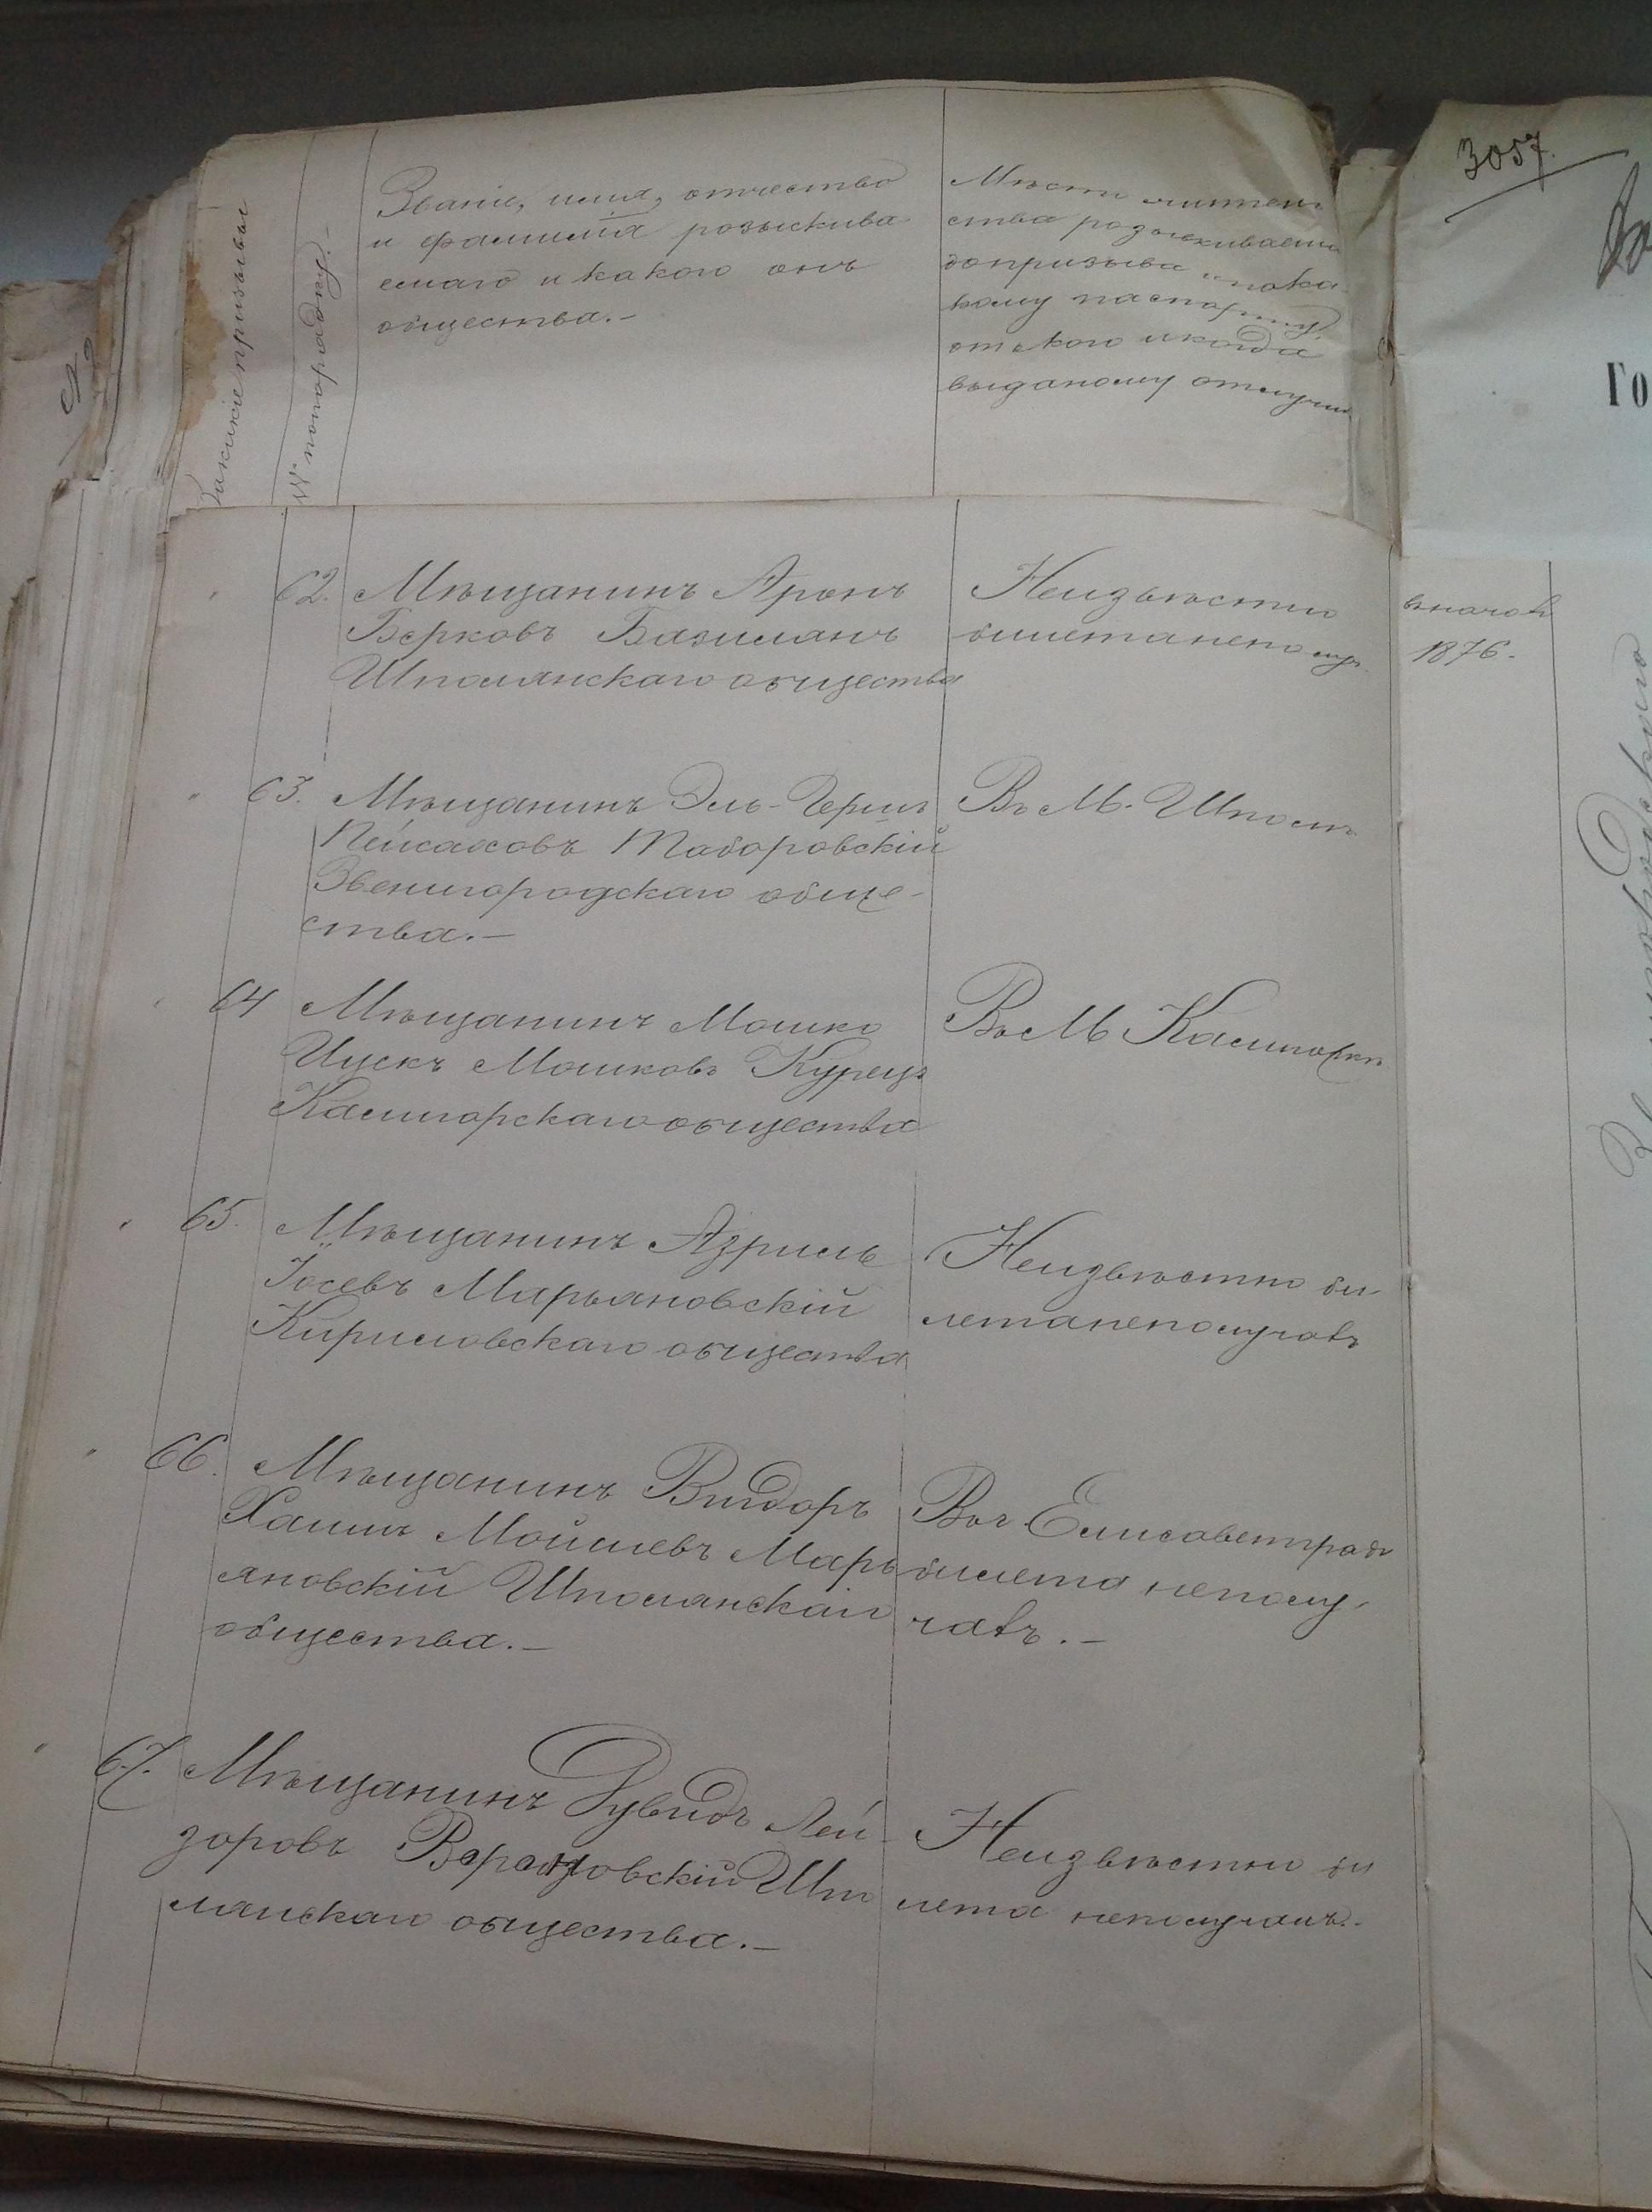 3057.
Званіе, имя, отчество
и фамилія розыскива
емаго и какого онъ
общества.-
Мѣсто жител
ства розыскиваем
допризыва и пока
кому паспорту,
отъ кого и когда
выданому отлучил
какіе призывы
№ попорядку.-
ГО
62. Мѣщанинъ Аронъ
Берковъ Базилянъ
Шполянскаго общества
Неизвѣстно
билетанеполуч.
вначал
1876.
63. Мѣщанинъ Эль-Гершъ
Пейсаховъ Таборовскій
Звенигородскаго обще-
ства.-
Въ М. Шполѣ
64 Мѣщанинъ Мошко
Ицекъ Мошковъ Курецъ
Калигорскаго общества
Въ М Калигоркѣ
65. Мѣщанинъ Азриль
Іосевъ Марьяновскій
Кириловскаго общества
Неизвѣстно би-
летанеполучалъ
66. Мѣщанинъ Вигдоръ
Хаимъ Мойшевъ Марь
яновскій Шполянскаго
общества.-
Въ г Елисаветград
билета неполу-
чалъ.-
67. Мѣщанинъ Рувидъ Лей-
зоровъ Шпо
лянскаго общества.-
Неизвѣстно би
лета неполучалъ.-